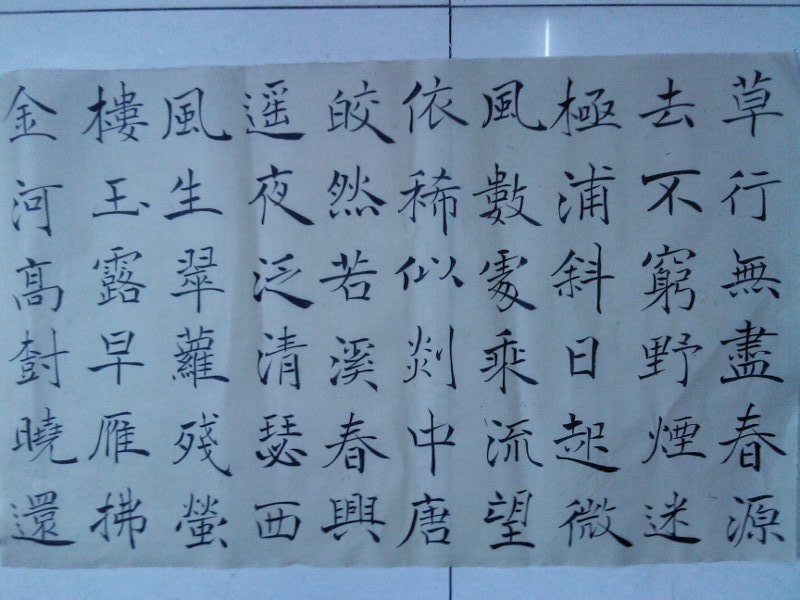 草行無盡春源
去不窮野煙迷
極浦斜日起微
風數處乘流望
依稀似剡中唐
皎然若溪春興
遥夜泛清瑟西
風生翠蘿殘螢
樓玉露早雁拂
金河高樹曉還